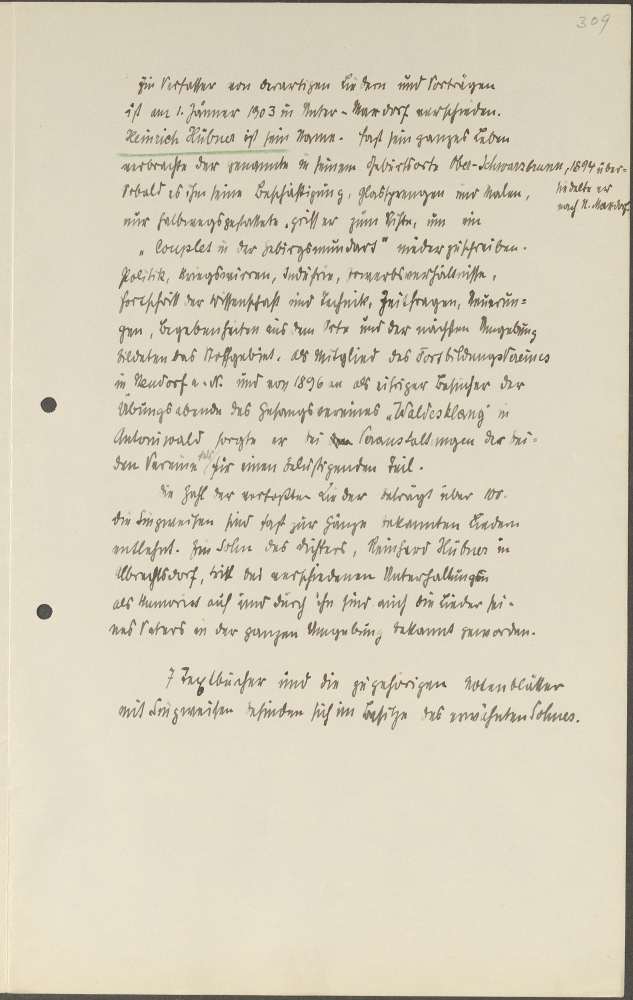 309
Ein Verfasser von derartigen Liedern und Vorträgen
ist am 1. Jänner 1903 in Unter-Maxdorf verschieden.
Heinrich Hübner ist sein Name. Fast sein ganzes Leben
verbrachte der genannte in seinem Geburtsorte Ober-Schwarzbrunn, 1894 über-
siedelte er
nach U. Maxdorf.
Sobald es ihm seine Beschäftigung, Glassprengen und Malen,
nur halbwegs gestattete, griff er zum Stifte, um ein
„Couplet in der Gebirgsmundart" niederzuschreiben.
Politik, Kriegswirren, Industrie, Erwerbsverhältnisse,
Fortschritt der Wissenschaft und Technik, Zeitfragen, Neuerun=
gen, Begebenheiten aus dem Orte und der nächsten Umgebung
bildeten das Stoffgebiet. Als Mitglied des Fortbildungsvereines
in Neudorf a. N. und von 1896 an als eifriger Besucher der
Übungsabende des Gesangsvereines „Waldesklang" in
Antoniwald sorgte er bei Veranstaltungen der bei=
den Vereine für einen belustigenden Teil.
Die Zahl der verfaßten Lieder beträgt über 100.
Die Singweisen sind fast zur Gänze bekannten Liedern
entlehnt. Ein Sohn des Dichters, Reinhard Hübner in
Albrechtsdorf, tritt bei verschiedenen Unterhaltungen
als Humorist auf und durch ihn sind auch die Lieder sei-
nes Vaters in der ganzen Umgebung bekannt geworden.
7 Textbücher und die zugehörigen Notenblätter
mit Singweisen befinden sich im Besitze des erwähnten Sohnes.